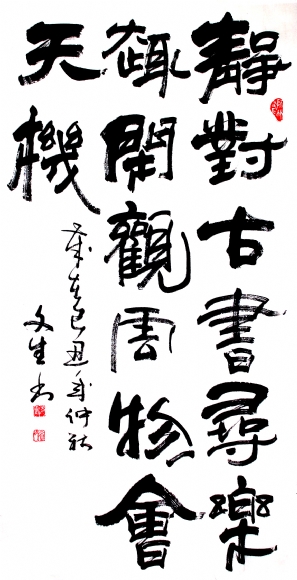 靜對古書尋樂
趣閑觀雲物會
天機
歲在己丑年仲秋
文生书